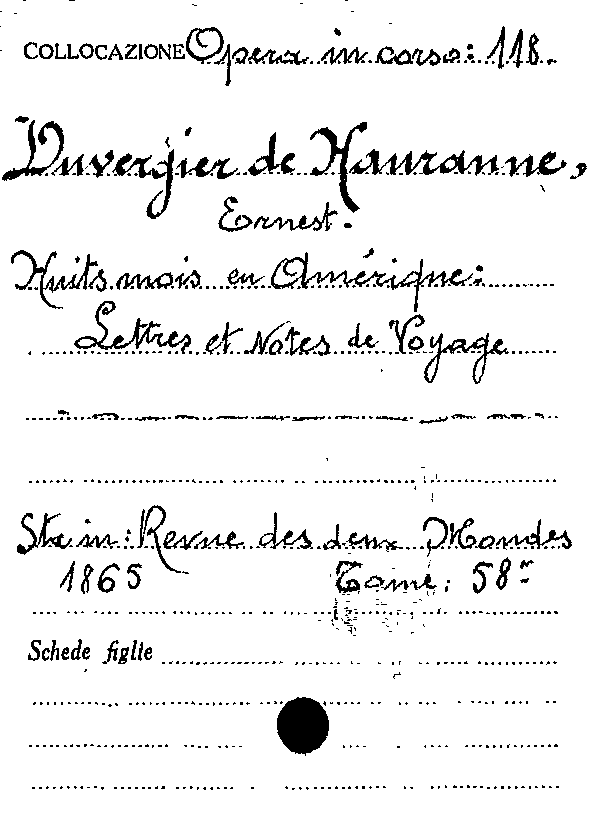 COLLOCAZIONE Opera in corso: 118.
Duvergier de Hauranne,
Ernest.
Huits mois en Amérique:
Lettres et Notes de Voyage
Sta in: Revue des deux Mondes
1865 Tome: 58
Schede figlie